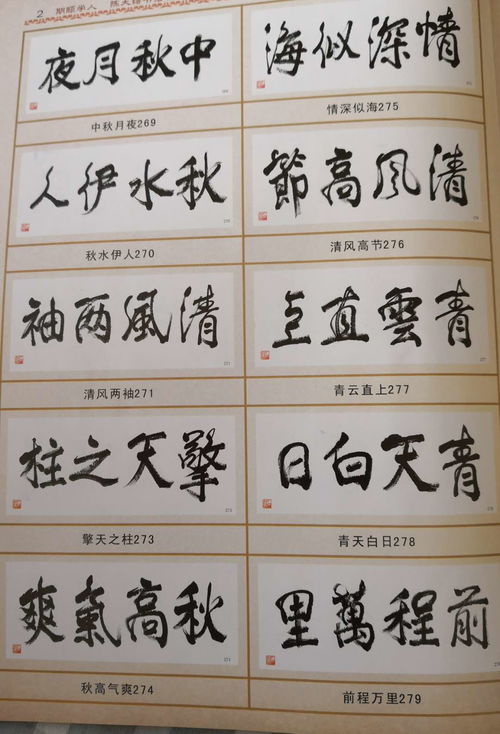 2 期颐学人
中秋月夜
中秋月夜269
情深似海
情深似海275
秋水伊人
秋水伊人270
清风高節
清风高节276
清風两袖
清风两袖271
青雲直上
青云直上277
擎天之柱
擎天之柱273
青天白日
青天白日278
秋高氣爽
秋高气爽274
前程萬里
前程万里279